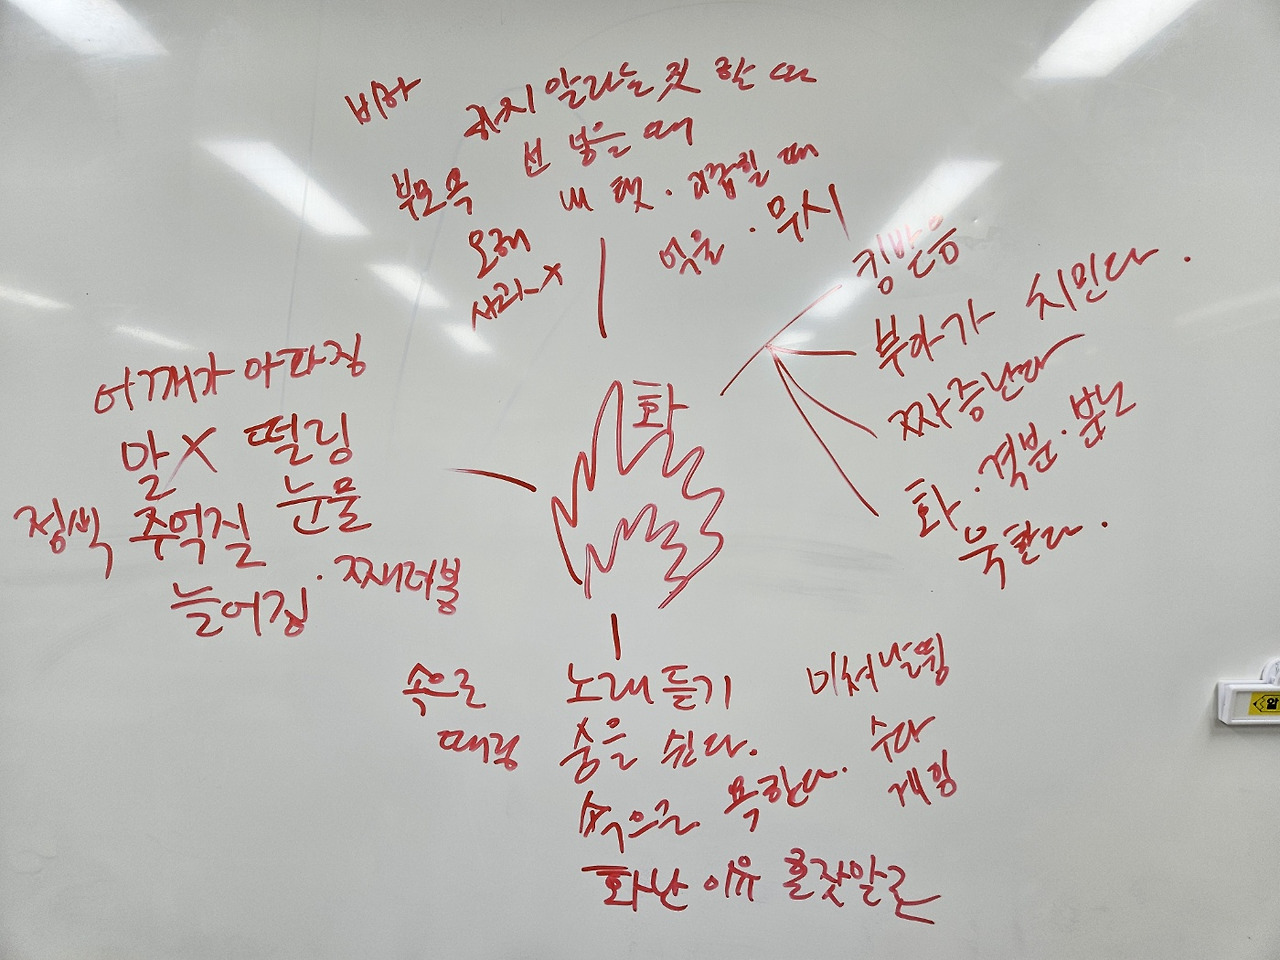 비하
하지 말라는 짓 할 때
선 넣을 때
부모욕
내 탓 · 지랄할 때
오해
사과 X
있을 · 무시
킹받음
부아가 치민다.
짜증난다
화 · 격분 · 분노
욱한다.
화
어깨가 아파짐
말X 떨림
정색 주먹질 눈물
늘어짐 · 째려봄
속으로
때림
노래 듣기
숨을 쉰다.
속으로 욕한다.
미쳐 날뜀
수다
게임
화난 이유 혼잣말로